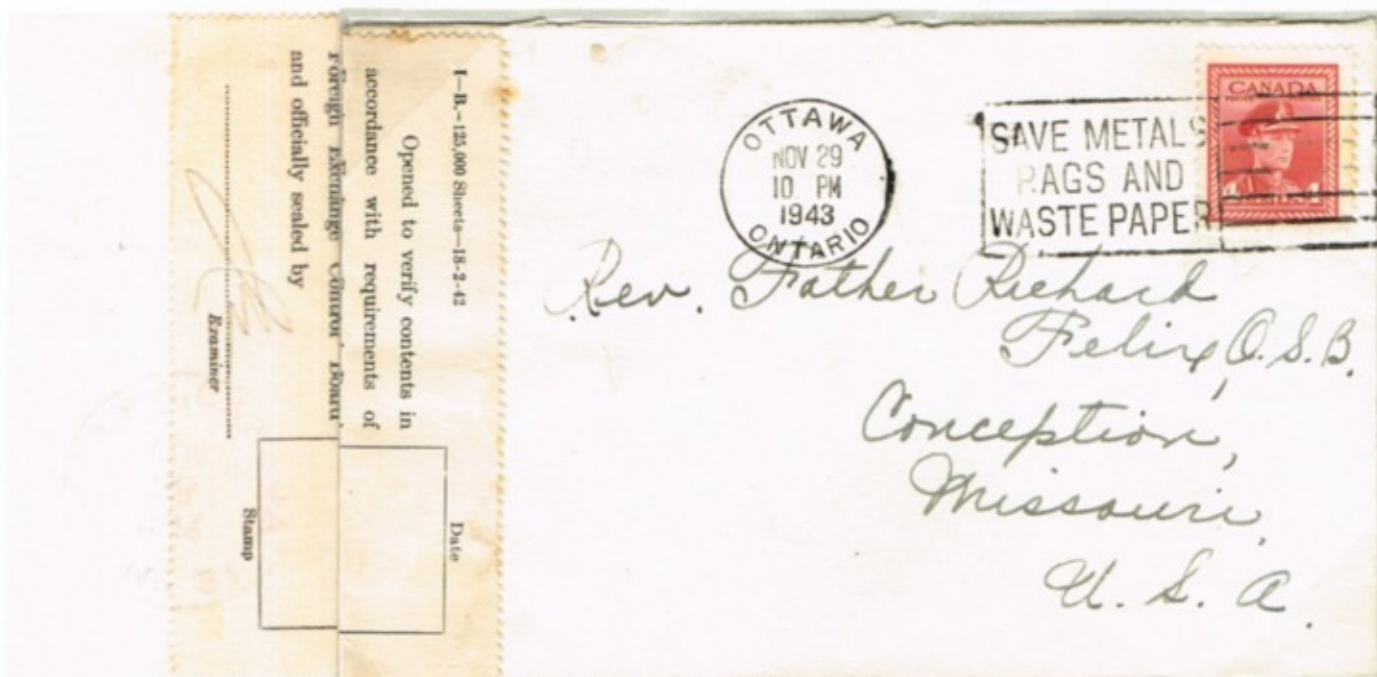 I—B.—125,000 Sheets—18-2-42
Opened to verify contents in
accordance with requirements of
Foreign Exchange Control Board
and officially sealed by
Examiner
Date
Stamp
OTTAWA
NOV 29
10 PM
1943
ONTARIO
SAVE METALS
RAGS AND
WASTE PAPER
CANADA
Rev. Father Richard
Felix, O.S.B.
Conception,
Missouri,
U.S.A.